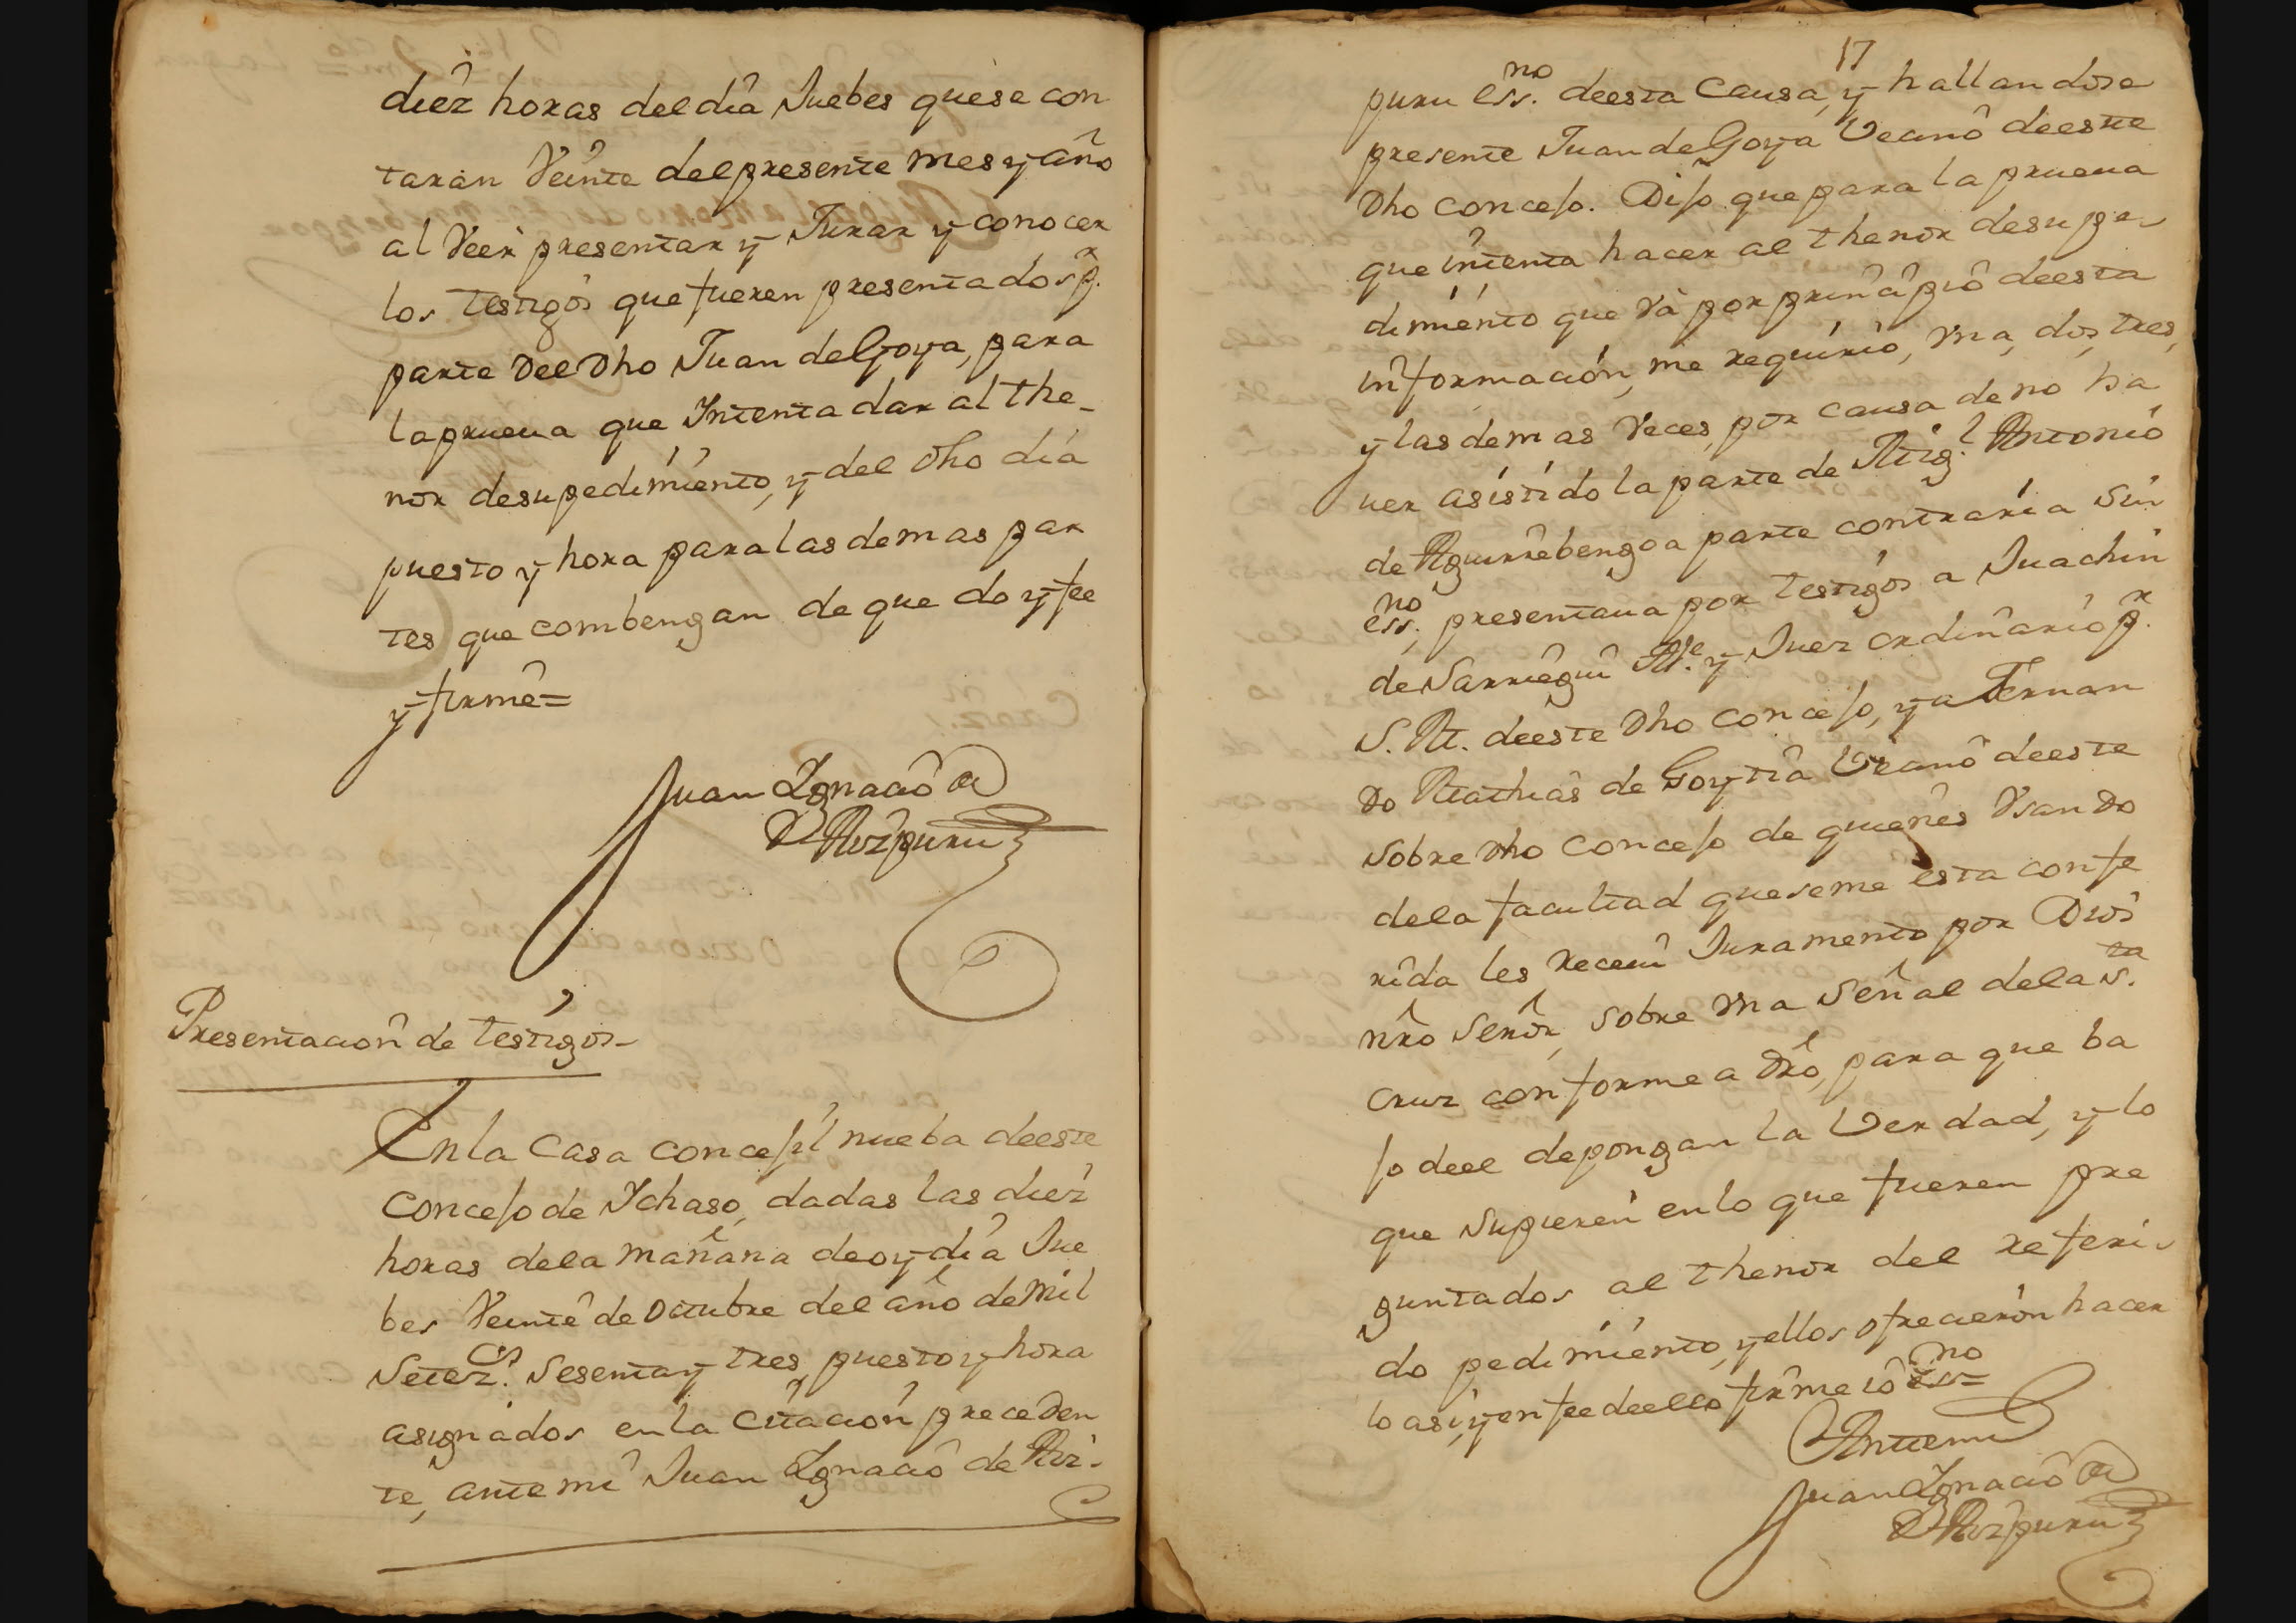 diez horas del dia Juebes que se con
taran Veinte del presente mes y año
al Veer presentar y Jurar y conocer
los testigos que fueren presentados pr.
parte del dho Juan de Goya, para
la prueua que Intenta dar al the-
nor de su pedimiento, y del dho dia
puesto y hora para las demas par
tes que combengan de que doy fee
y firme=
Juan Ignacio
de Aizpuru
Presentacion de testigos-
En la Casa concejil nueba de este
concejo de Ichaso, dadas las diez
horas de la mañana de oy dia Jue
bes Veinte de octubre del año de mil
Setezs. Sesenta y tres, puesto y hora
asignados en la Citacion preceden
te, ante mi Juan Ignacio de Aiz-
17
puru essno. de esta Causa, y hallandose
presente Juan de Goya Vecino de este
dho concejo. Dijo que para la prueua
que intenta hacer al thenor de su pe-
dimiento que Và por principio de esta
informacion, me requirio, vna, dos, tres,
y las demas Veces, por causa de no ha
uer asistido la parte de Migl. Antonio
de Aguirrebengoa parte contraria sin
essno. presentaua por testigos a Juachin
de Sarriegui Alce. y Juez ordinario pr.
S. M. de este dho concejo, y a Fernan
do Mathias de Goytia Vecino de este
sobre dho concejo de quienes Vsando
de la facultad que se me esta confe
rida les Receui Juramento por Dios
nro Señor, sobre vna Señal de la Sta.
Cruz conforme a dro, para que ba
jo de el depongan la Verdad, y lo
que Supieren en lo que fueren pre
guntados al thenor del referi-
do pedimiento, y ellos ofrecieron hacer
lo asi, y en fee de ello firme io essno=
Ante mi
Juan Ignacio
de Aizpuru